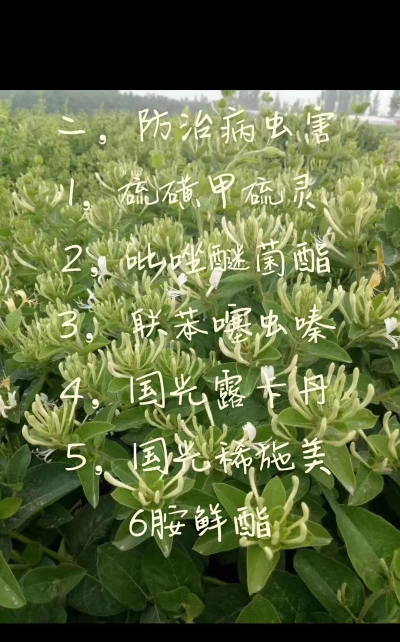 二，防治病虫害
1，硫磺甲硫灵
2，吡唑醚菌酯
3，联苯噻虫嗪
4，国光露卡丹
5，国光稀施美
6胺鲜酯